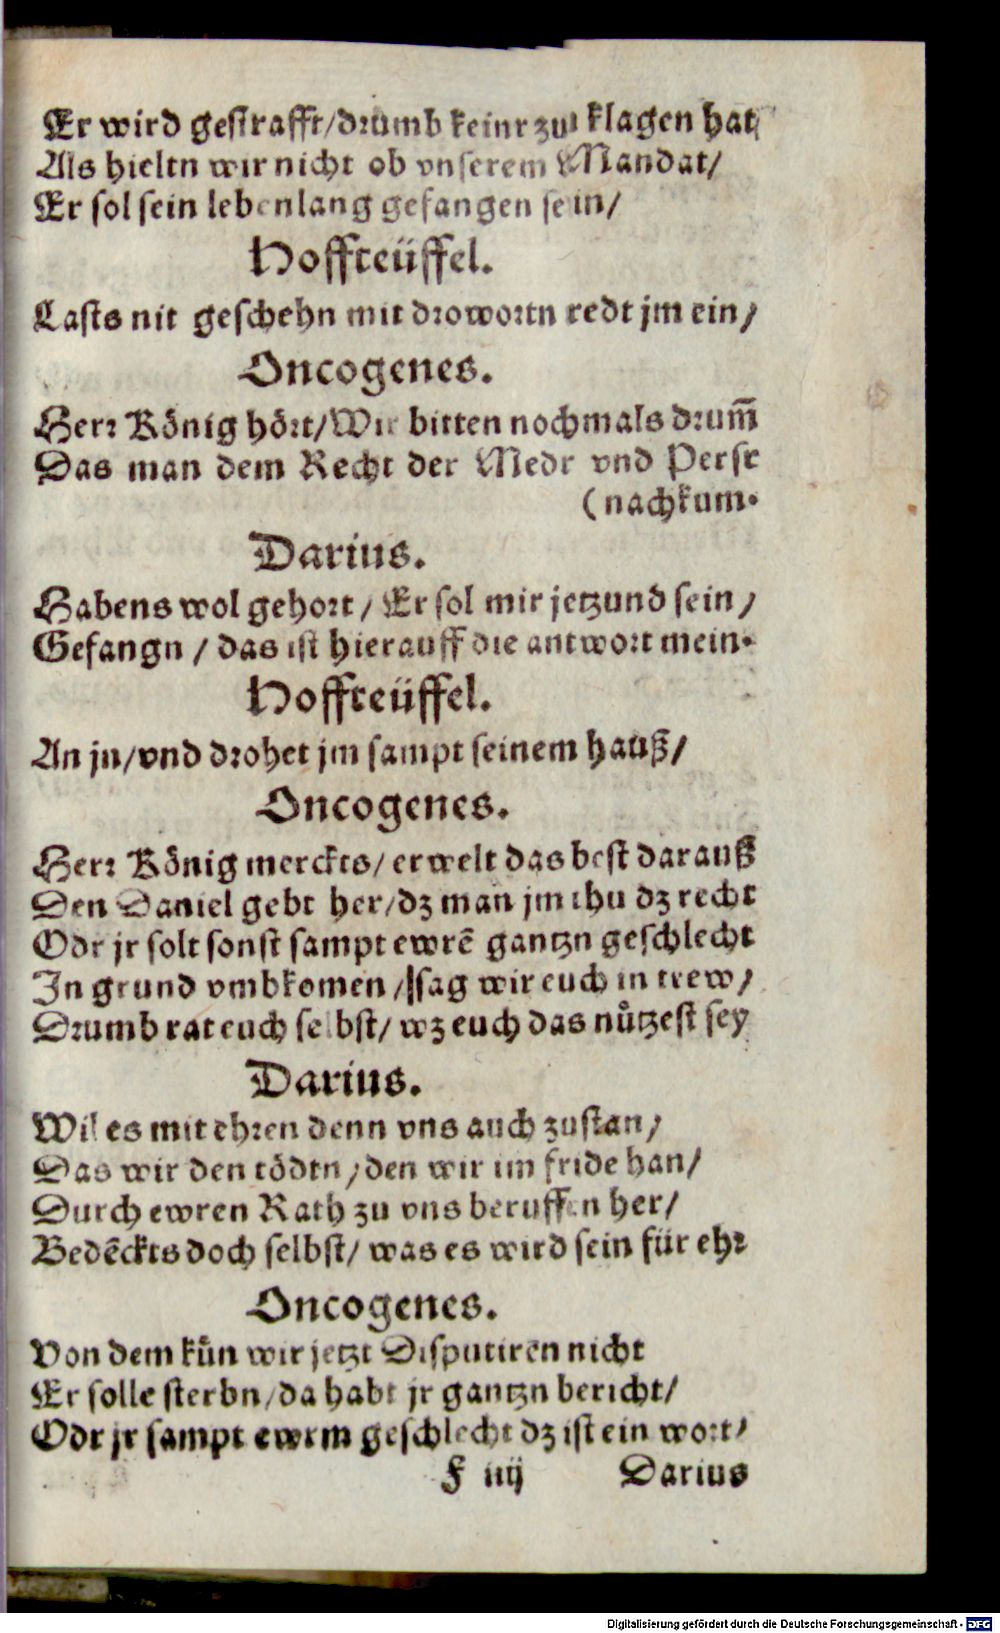 Er wird gestrafft/drumb keinr zu klagen hat
Als hieltn wir nicht ob vnserem Mandat/
Er sol sein lebenlang gefangen sein/
Hoffteüffel.
Lasts nit geschehn mit drowortn redt jm ein/
Oncogenes.
Herr König hört/Wir bitten nochmals drum̃
Das man dem Recht der Medr vnd Perse
(nachkum.
Darius.
Habens wol gehort/ Er sol mir jetzund sein/
Gefangn / das ist hierauff die antwort mein.
Hoffteüffel.
An jn/vnd drohet jm sampt seinem hauß/
Oncogenes.
Herr König merckts/ erwelt das best darauß
Den Daniel gebt her/dz man jm thu dz recht
Odr jr solt sonst sampt ewrẽ gantzn geschlecht
In grund vmbkomen/sag wir euch in trew/
Drumb rat euch selbst/ wz euch das nůtzest sey
Darius.
Wil es mit ehren denn vns auch zustan/
Das wir den tödtn/den wir im fride han/
Durch ewren Rath zu vns beruffen her/
Bedẽckts doch selbst/ was es wird sein für ehr
Oncogenes.
Von dem kůn wir jetzt Disputiren nicht
Er solle sterbn/da habt jr gantzn bericht/
Odr jr sampt ewrm geschlecht dz ist ein wort/
F iiij Darius
Digitalisierung gefördert durch die Deutsche Forschungsgemeinschaft - DFG